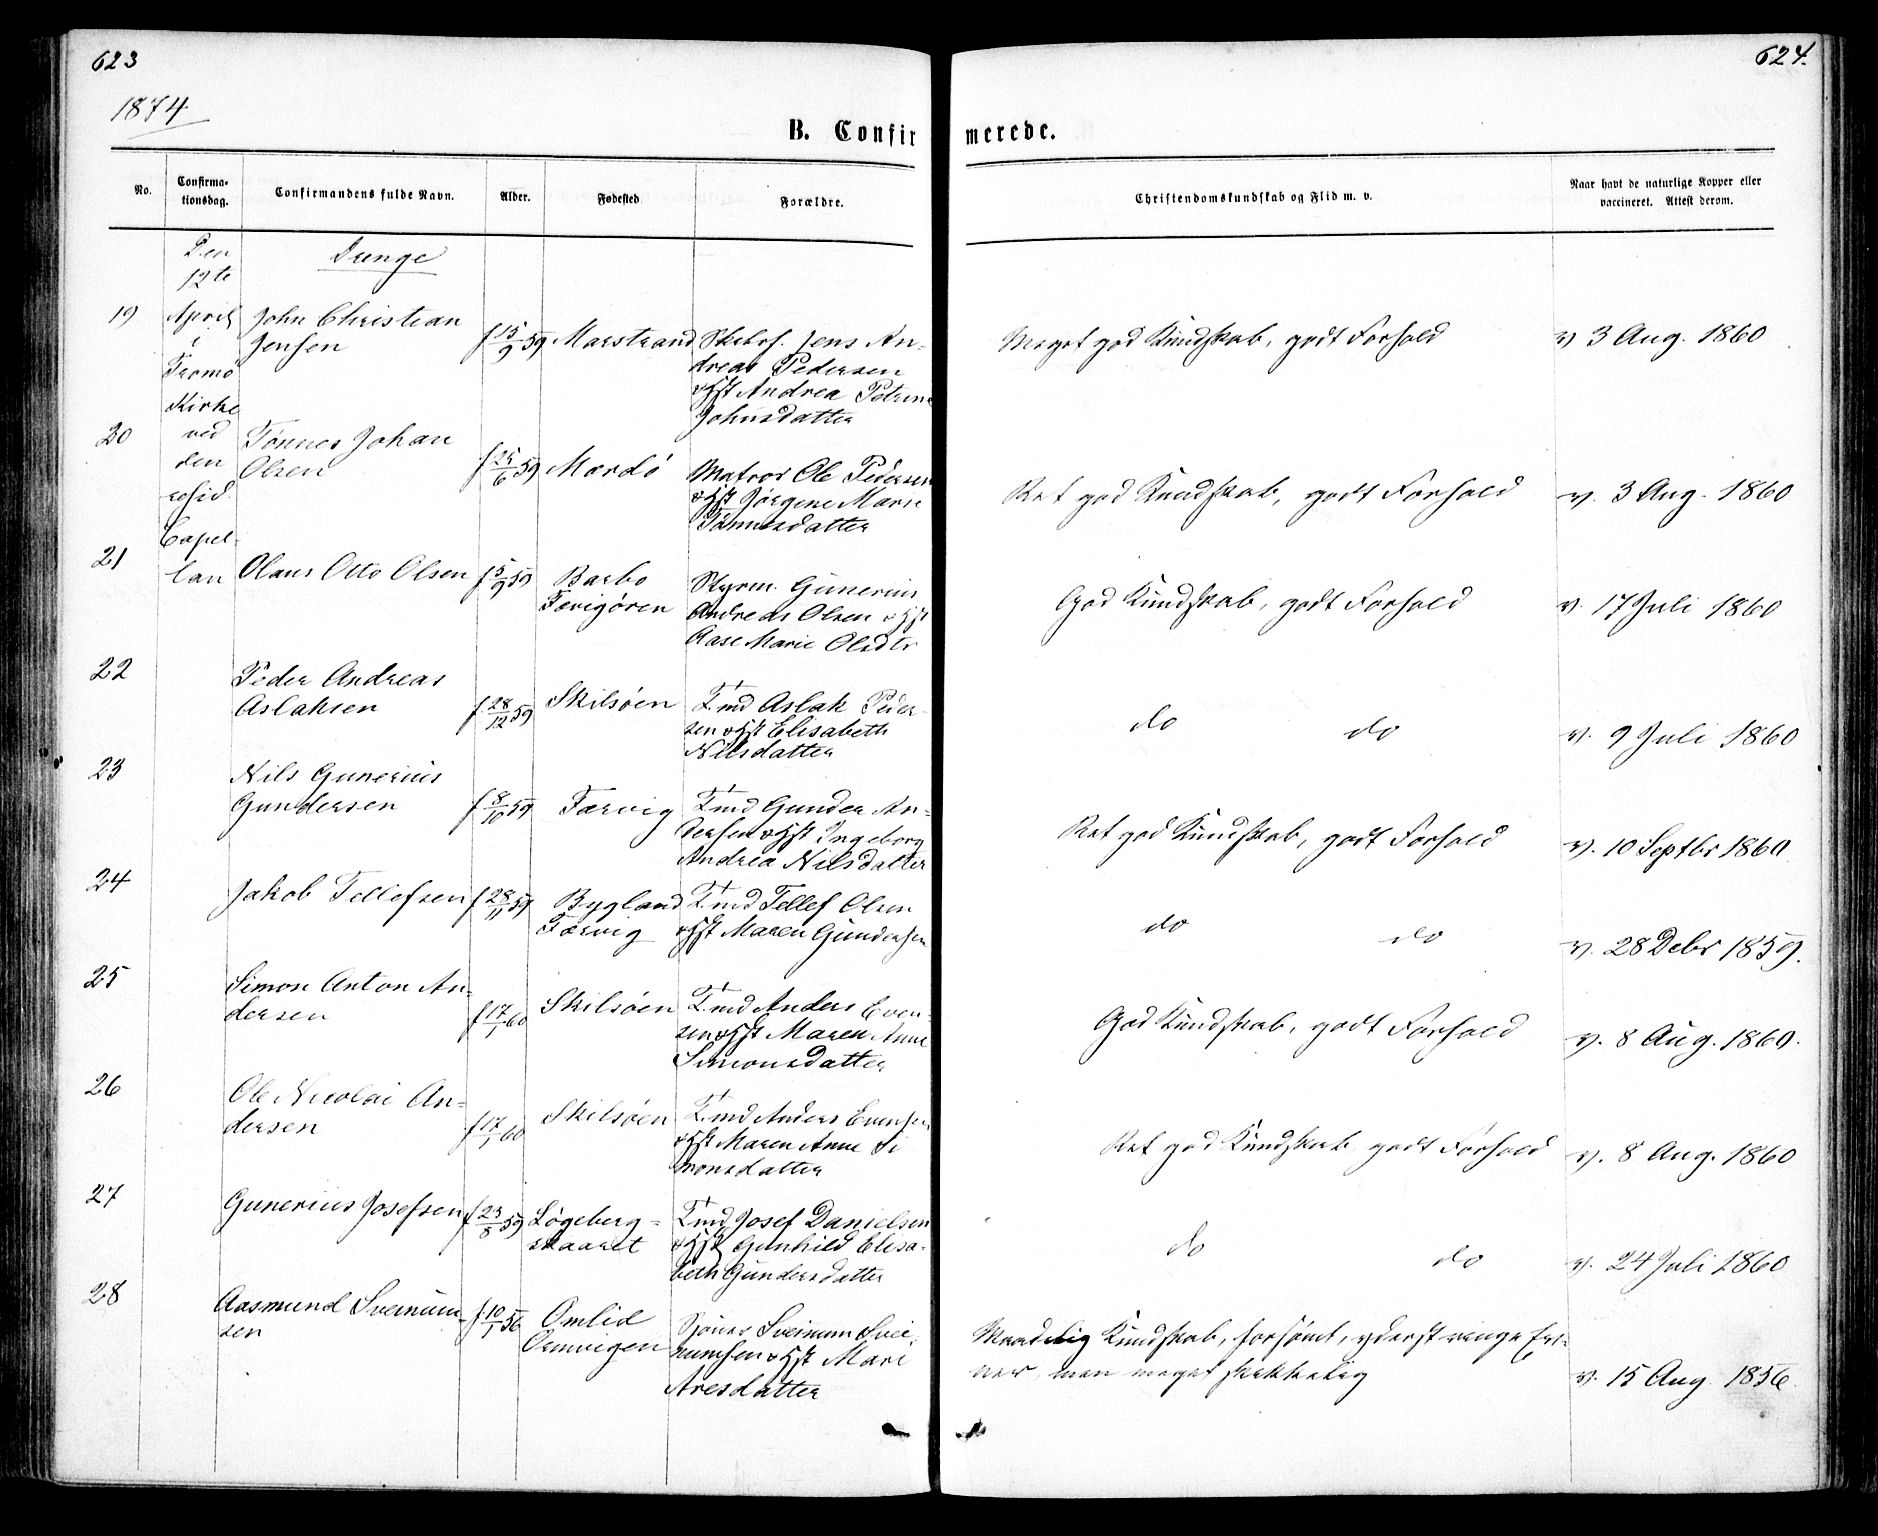 623
624.
1874
B. Confirmerede.
No.
Confirmationsdag.
Confirmandens fulde Navn.
Alder.
Fødested
Forældre.
Christendomskundskab og Flid m. v.
Naar havt de naturlige Kopper eller
vaccineret. Attest derom.
Den
12te
April
i
Tromø
Kirke
ved
den
resid.
Capel-
lan
Drenge
19
John Christian
Jensen
f 15/9 59
Marstrand
Jens An-
dreas Pedersen
& Hst Andrea Petrine
Johnsdatter
Meget god Kundskab, godt Forhold
v 3 Aug. 1860
20
Tønnes Johan
Olsen
f 25/6 59
Mærdø
Matros Ole Pedersen
& Hst Jørgine Marie
Tønnesdatter
Ret god Kundskab, godt Forhold
v. 3 Aug. 1860
21
Olaus Otto Olsen
f 5/9 59
Barbo
Færvigøren
Styrm. Gunerius
Andreas Olsen & Hst
Aase Marie Olsdtr
God Kundskab, godt Forhold
v. 17 Juli 1860
22
Peder Andreas
Aslaksen
f 28/12 59
Skilsøen
Tmd Aslak Peder-
sen & Hst Elisabeth
Nilsdatter
do do
v. 9 Juli 1860
23
Nils Gunerius
Gundersen
f 8/10 59
Færvig
Tmd Gunder An-
dersen & Hst Ingeborg
Andrea Nilsdatter
Ret god Kundskab, godt Forhold
v. 10 Septbr 1860
24
Jakob Tellefsen
f 28/11 59
Bygland
Færvig
Tmd Tellef Olsen
& Hst Maren Gundersen
do do
v. 28 Debr 1859.
25
Simon Anton An-
dersen
f 17/1 60
Skilsøen
Tmd Anders Even-
sen & Hst Maren Anne
Simonsdatter
God Kundskab, godt Forhold
v. 8 Aug. 1860.
26
Ole Nicolai An-
dersen
f 17/1 60
Skilsøen
Tmd Anders Evensen
& Hst Maren Anne Si
monsdatter
Ret god Kundskab godt Forhold
v. 8 Aug. 1860
27
Gunerius Josefsen
f 23/8 59
Løgeberg-
skaaret
Tmd Josef Danielsen
& Hst Gunhild Elisa-
beth Gundersdatter
do do
v. 24 Juli 1860
28
Aasmund Sveinum-
sen
f 10/1 56
Omlid
Ormvigen
Sveinum Svei-
numsen & Hst Mari
Aresdatter
Maadelig Kundskab, forsømt, yderst ringe Ev-
ner, men meget skikkelig
v. 15 Aug. 1856.